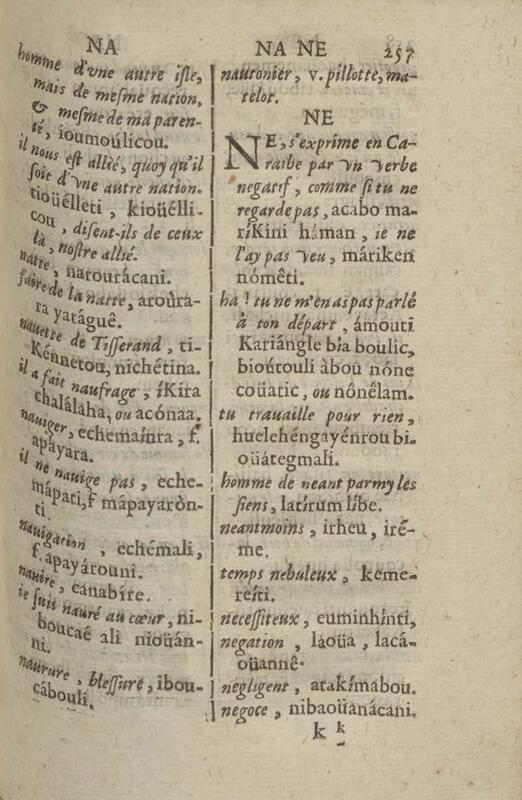 NA
homme d'vne autre isle,
mais de mesme nation,
& mesme de ma paren-
té, ioumoúlicou.
il nous est allié, quoy qu'il
soit d'vne autre nation.
tioüélleti, kioüélli-
cou, disent-ils de ceux
là, nostre allié.
natte, natourácani.
faire de la natte, aroúra-
ra yatáguê.
nauette de Tisserand, ti-
Kénnetou, nichétina.
il a fait naufrage, íKira
chalálaha, ou acónaa.
nauiger, echemainra, f.
apáyara.
il ne nauige pas, eche-
mápati, f mápayaròn-
ti.
nauigation, echémali,
f. apayárouni.
naubre, canabire.
ie suis nauré au cœur, ni-
boucaé ali nioüán-
ni.
naurure, blessure, ibou-
cábouli.
NA NE 257
nautonier, v. pillotte, ma-
telot.
NE
NE, s'exprime en Ca-
raibe par vn verbe
negatif, comme si tu ne
regarde pas, acabo ma-
ríKini háman, ie ne
l'ay pas veu, máriken
nómêti.
há! tu ne m'en as pas parlé
à ton départ, ámouti
Kariángle bía boulic,
bioútouli àbou nóne
coüatic, ou nónêlam.
tu trauaille pour rien,
huelehéngayénrou bi-
oüátegmali.
homme de neant parmy les
siens, latírum líbe.
neantmoins, irheu, iré-
me.
temps nebuleux, keme-
reíti.
necessiteux, euminhínti,
negation, láoüa, lacá-
oüannê.
negligent, atakímabou.
negoce, nibaoüanácani.
k k